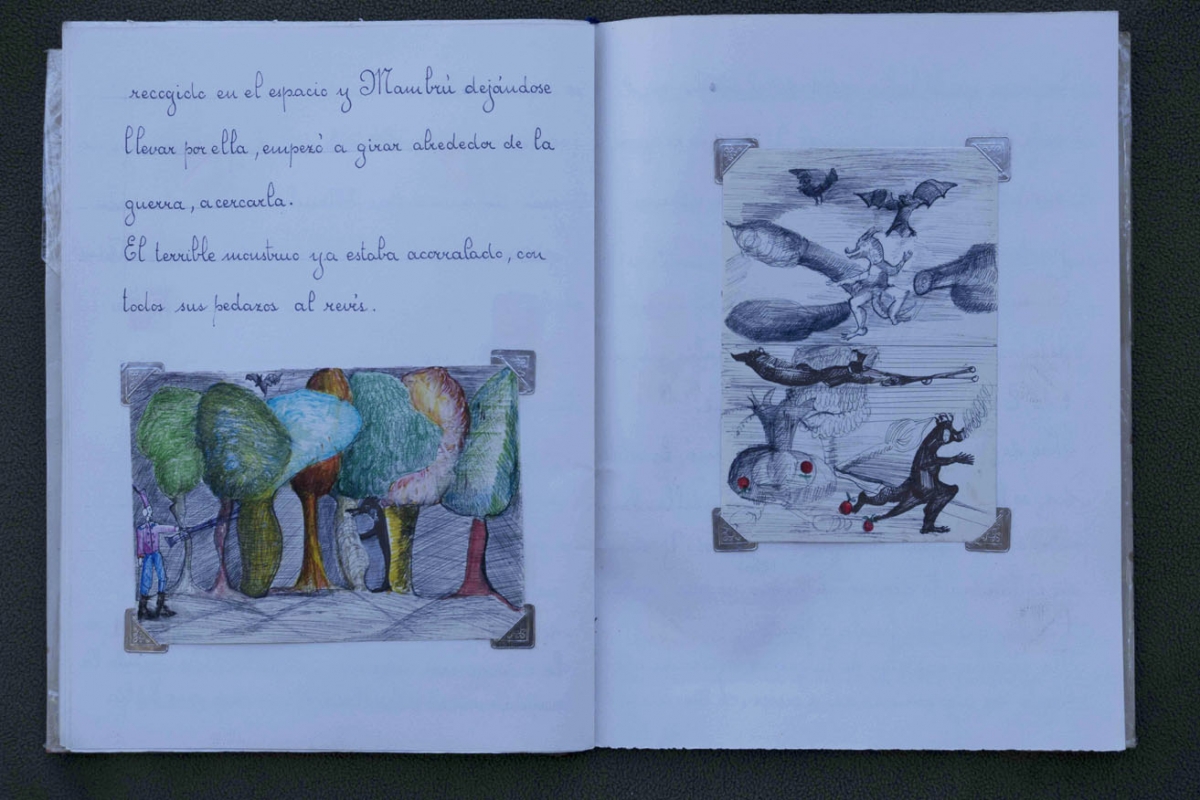 recogido en el espacio y Mambrú dejándose
llevar por ella, empezó a girar alrededor de la
guerra, a cercarla.
El terrible monstruo ya estaba acorralado, con
todos sus pedazos al revés.